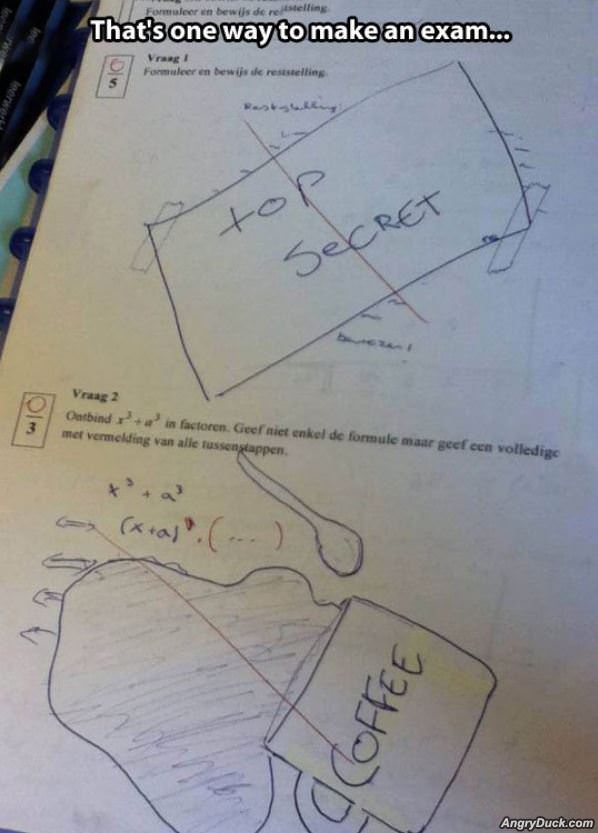 Formuleer en bewijs de reststelling.
That's one way to make an exam...
Vraag 1
0
5
Formuleer en bewijs de reststelling.
Reststelling:
TOP
SECRET
bewezen!
Vraag 2
0
3
Ontbind x³ + a³ in factoren. Geef niet enkel de formule maar geef een volledige
met vermelding van alle tussenstappen.
x³ + a³
(x+a) . ( ... )
COFFEE
AngryDuck.com